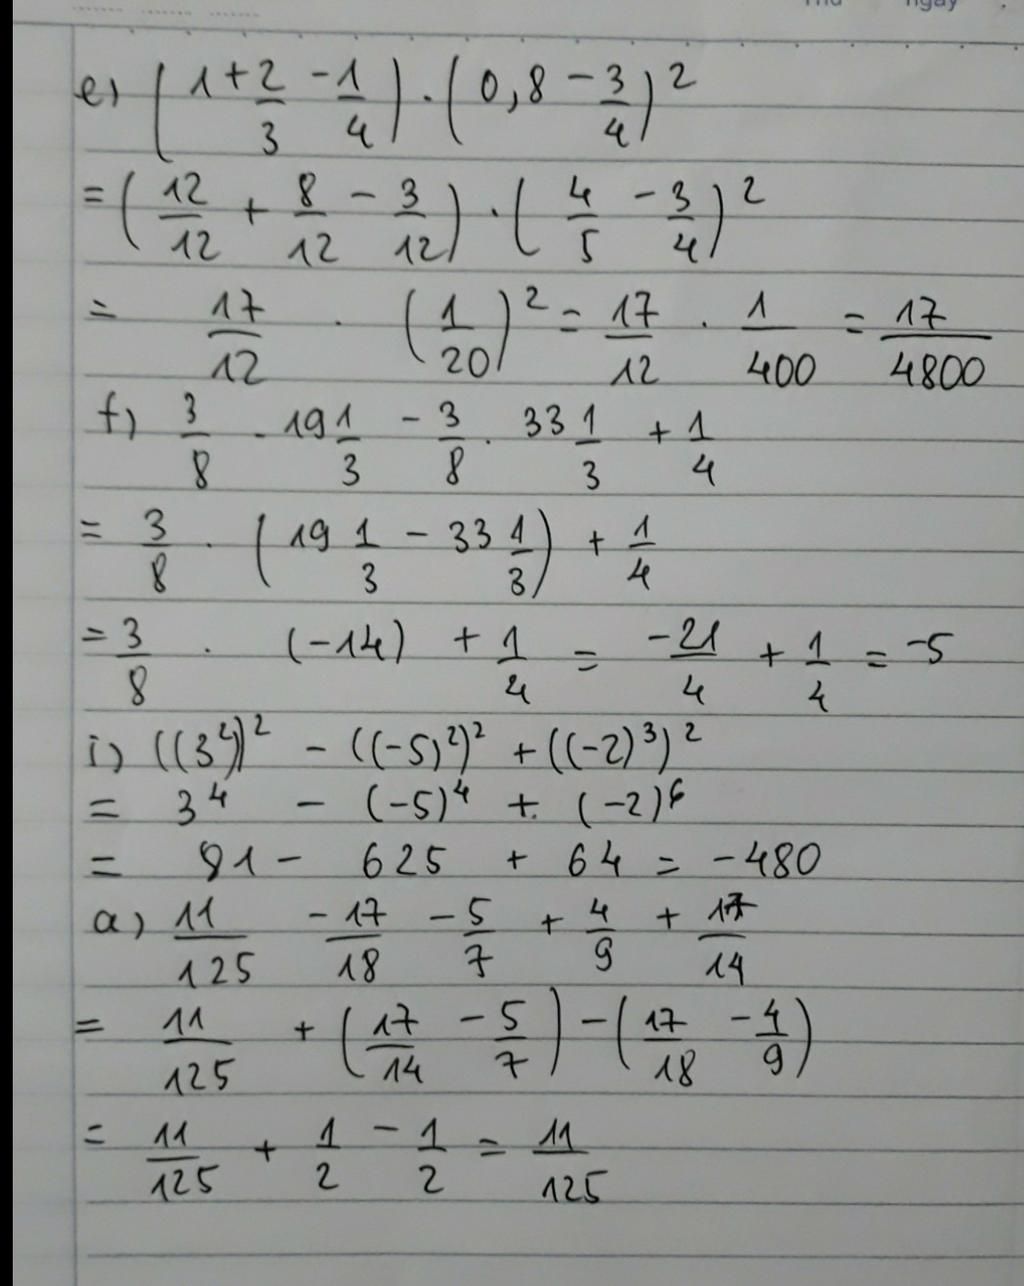 Thứ ngày
e) (1 + 2/3 - 1/4) . (0,8 - 3/4)²
= (12/12 + 8/12 - 3/12) . (4/5 - 3/4)²
= 17/12 . (1/20)² = 17/12 . 1/400 = 17/4800
f) 3/8 . 19 1/3 - 3/8 . 33 1/3 + 1/4
= 3/8 . (19 1/3 - 33 1/3) + 1/4
= 3/8 . (-14) + 1/4 = -21/4 + 1/4 = -5
i) ((3²))² - ((-5)²)² + ((-2)³)²
= 3⁴ - (-5)⁴ + (-2)⁶
= 81 - 625 + 64 = -480
a) 11/125 - 17/18 - 5/7 + 4/9 + 17/14
= 11/125 + (17/14 - 5/7) - (17/18 - 4/9)
= 11/125 + 1/2 - 1/2 = 11/125